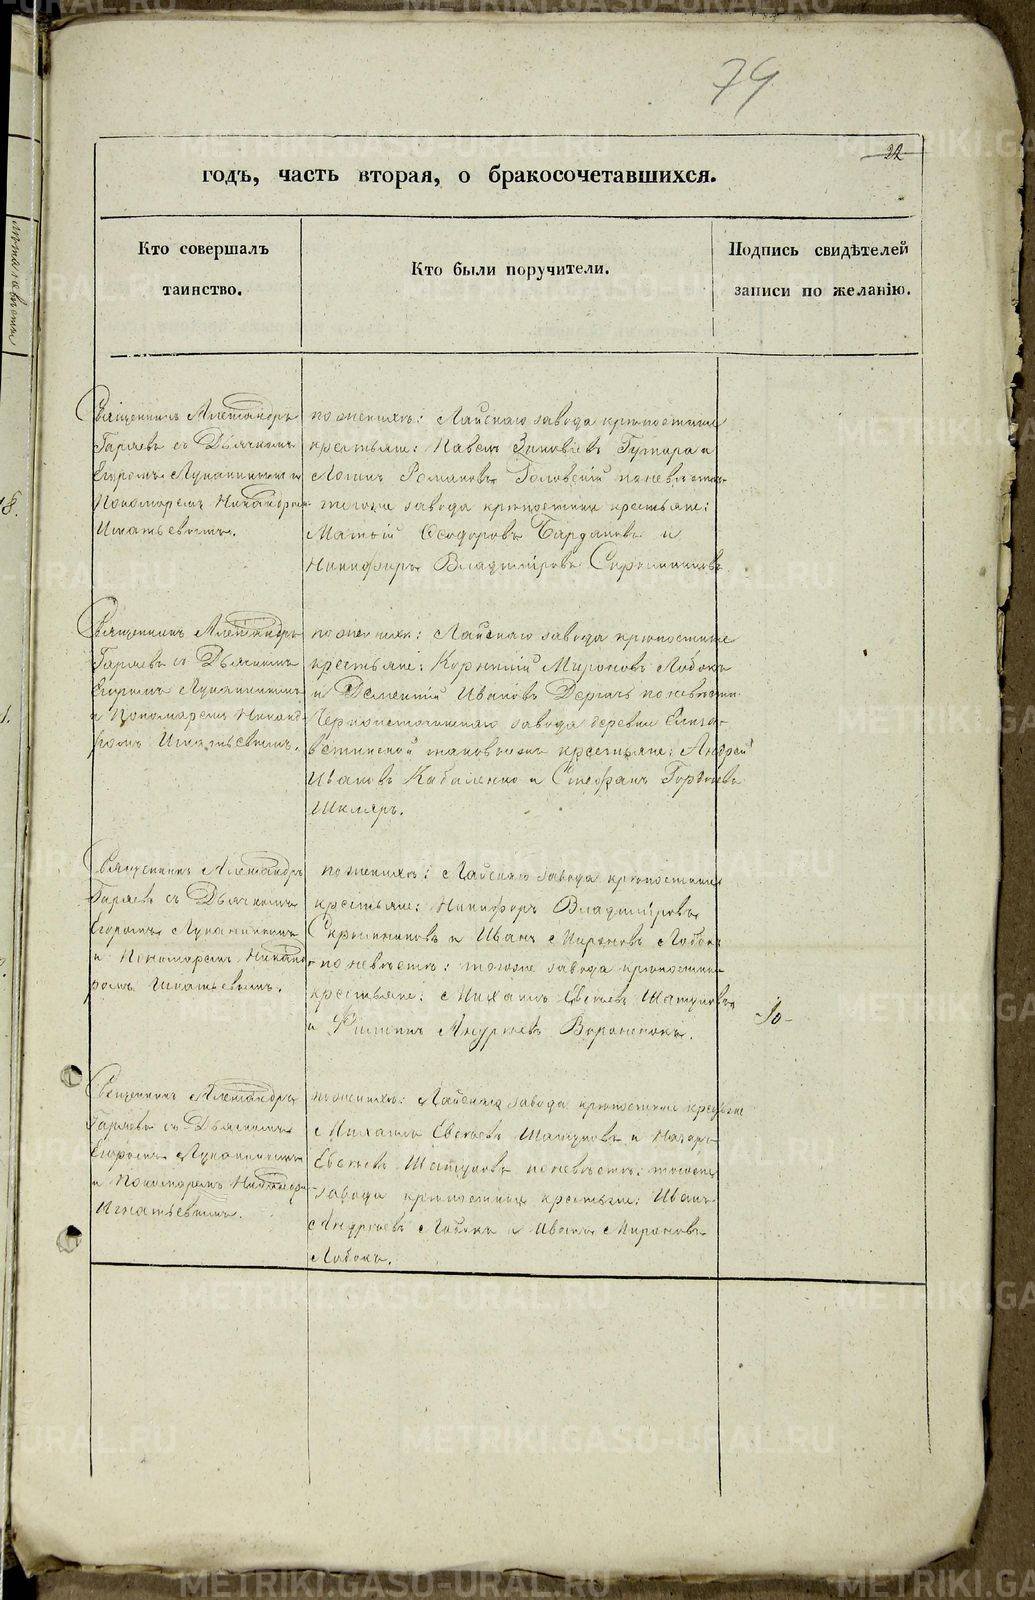 79
22
годъ, часть вторая, о бракосочетавшихся.
Кто совершалъ
таинство.
Кто были поручители.
Подпись свидѣтелей
записи по желанію.
Священникъ Александръ
Гаряевъ съ Дьячкомъ
Егоромъ Луканинымъ и
Пономаремъ Никандромъ
Игнатьевымъ.
по женихѣ: Лайскаго завода крѣпостные
крестьяне: Павелъ Зиновіевъ Гутара и
Логинъ Романовъ Головскій по невѣстѣ:
тогоже завода крѣпостные крестьяне:
Матѳій Ѳеодоровъ и
Никифоръ Владиміровъ Скрыпниковъ
Священникъ Александръ
Гаряевъ съ Дьячкомъ
Егоромъ Луканинымъ
и Пономаремъ Никанд-
ромъ Игнатьевымъ.
по женихѣ: Лайскаго завода крѣпостные
крестьяне: Корнилій Мироновъ Лобокъ
и Дементій Ивановъ Дергачъ по невѣстѣ
Черноисточинскаго завода деревни Елиза-
ветинской крестьяне: Андрей
Ивановъ Кабаленко и Стефанъ Гордѣевъ
Шкляръ.
Священникъ Александръ
Гаряевъ съ Дьячкомъ
Егоромъ Луканинымъ
и Пономаремъ Никанд-
ромъ Игнатьевымъ.
по женихѣ: Лайскаго завода крѣпостные
крестьяне: Никифоръ Владиміровъ
Скрыпниковъ и Иванъ Мироновъ Лобокъ
по невѣстѣ: тогоже завода крѣпостные
крестьяне: Михаилъ Евсѣевъ Шатуновъ
и Филиппъ Андреевъ Воронёнокъ.
Священникъ Александръ
Гаряевъ съ Дьячкомъ
Егоромъ Луканинымъ
и Пономаремъ Никандро
Игнатьевымъ.
по женихѣ: Лайскаго завода крѣпостные крестьяне
Михаилъ Евсѣевъ Шатуновъ и Назаръ
Евсѣевъ Шатуновъ по невѣстѣ: тогоже
завода крѣпостные крестьяне: Иванъ
Андреевъ Лобокъ и Иванъ Мироновъ
Лобокъ.
METRIKI.GASO-URAL.RU